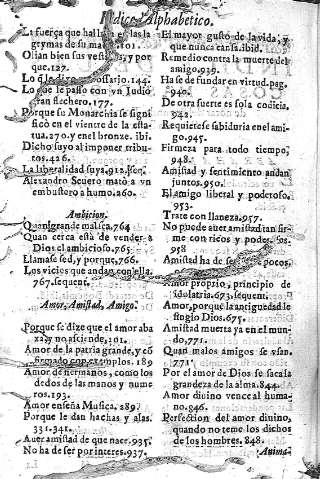 Indice Alphabetico.
La fuerça que hallan en las la
grymas de su madre.101.
Olian bien sus vestidos, y por
que.127.
Lo que dize a Dossario.144.
Lo que le passo con vn Iudio
gran flechero.177.
Porque su Monarchia se signi
ficò en el vientre de la esta-
tua.270.y en el bronze. ibi.
Dicho suyo al imponer tribu-
tos.426.
La liberalidad suya.912.
Alexandro Seuero matò a vn
embustero a humo.260.
Ambicion.
Quan grande mal sea.764
Quan cerca està de vender a
Dios el ambicioso.765
Llamase sed, y porque,766.
Los vicios que andan con ella.
767.sequent.
Amor, Amistad, Amigo.
Porque se dize que el amor aba
xa, y no asciende,101.
Amor de la patria grande, y cō
firmado con exemplos. 189
Amor de hermanos, como los
dedos de las manos y nume
ros.193.
Amor enseña Musica. 289.
Porque le dan hachas y alas.
331.341.
Auer amistad de que nace.935.
No ha de ser por interes.937.
El mayor gusto de la vida, y
que nunca cansa.ibid.
Remedio contra la muerte del
amigo.939.
Ha se de fundar en virtud.pag.
940.
De otra suerte es sola codicia.
942.
Requierese sabiduria en el ami-
go.945.
Firmeza para todo tiempo,
948.
Amistad y sentimiento andan
juntos.950.
El amigo liberal y poderoso.
953.
Trate con llaneza.957.
No puede auer amistad tan fir-
me con ricos y poderosos.
958
Amistad ha de ser pocos.
Amor proprio, principio de
idolatria.673.sequent.
Amor, porque la antiguedad le
fingio Dios.675.
Amistad muerta ya en el mun-
do,771.
Quan malos amigos se vsan.
771.
Por el amor de Dios se saca la
grandeza de la alma.844.
Amor diuino vence al huma-
no.846.
Perfection del amor diuino,
quando no teme los dichos
de los hombres.848.
Anima.